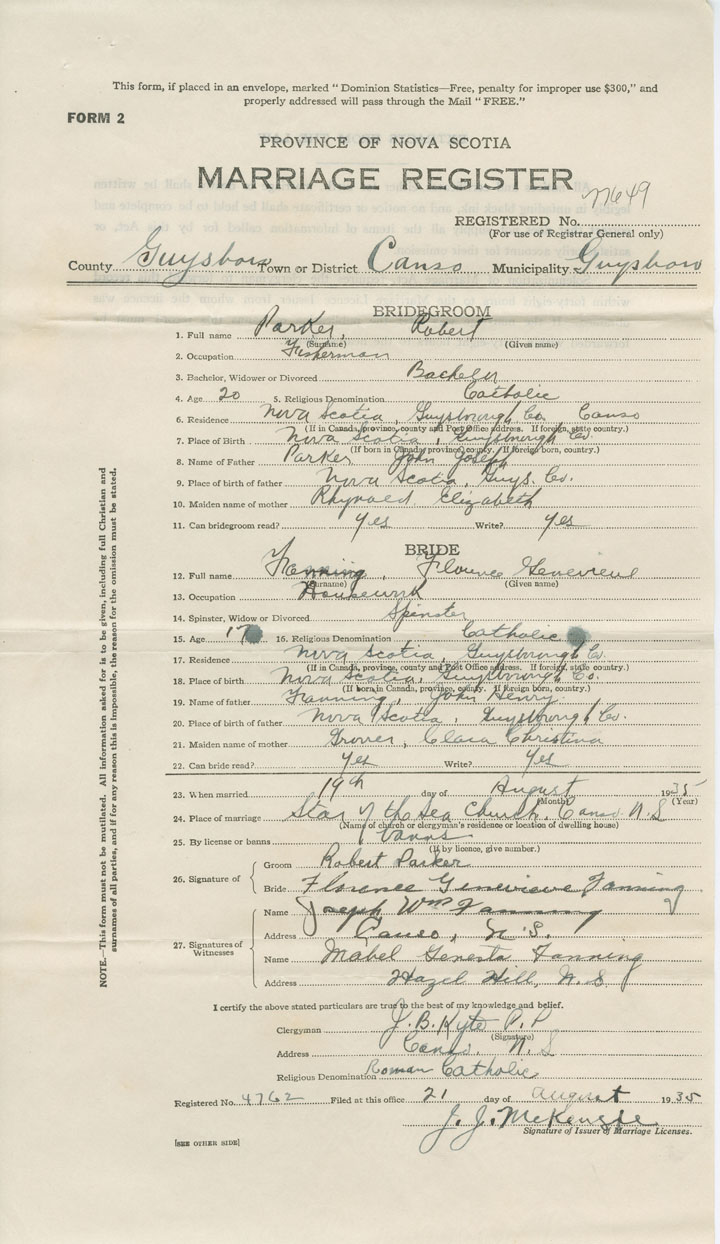 This form, if placed in an envelope, marked "Dominion Statistics—Free, penalty for improper use $300," and
properly addressed will pass through the Mail "FREE."
FORM 2
PROVINCE OF NOVA SCOTIA
MARRIAGE REGISTER
REGISTERED No.
(For use of Registrar General only)
County Guysboro Town or District Canso Municipality Guysboro
BRIDEGROOM
1. Full name Parker, Robert
(Surname) (Given name)
2. Occupation Fisherman
3. Bachelor, Widower or Divorced Bachelor
4. Age 20 5. Religious Denomination Catholic
6. Residence Nova Scotia, Guysborough Co. Canso
(If in Canada, province, county and Post Office address. If foreign, state country.)
7. Place of Birth Nova Scotia, Guysborough Co.
(If born in Canada, province, county. If foreign born, country.)
8. Name of Father Parker John Joseph
9. Place of birth of father Nova Scotia, Guys. Co.
10. Maiden name of mother Rhynold Elizabeth
11. Can bridegroom read? yes Write? yes
BRIDE
12. Full name Fanning, Florence Genevieve
(Surname) (Given name)
13. Occupation Housework
14. Spinster, Widow or Divorced Spinster
15. Age 17 16. Religious Denomination Catholic
17. Residence Nova Scotia, Guysborough Co.
(If in Canada, province, county and Post Office address. If foreign, state country.)
18. Place of birth Nova Scotia, Guysborough Co.
(If born in Canada, province, county. If foreign born, country.)
19. Name of father Fanning, John Henry
20. Place of birth of father Nova Scotia, Guysborough Co.
21. Maiden name of mother Grover, Clara Christina
22. Can bride read? Yes Write? Yes
23. When married 19th day of August 1935
(Month) (Year)
24. Place of marriage Star of the Sea Church, Canso N.S
(Name of church or clergyman's residence or location of dwelling house)
25. By license or banns banns
(If by licence, give number.)
26. Signature of
Groom Robert Parker
Bride Florence Genevieve Fanning
27. Signatures of Witnesses
Name Joseph Wm Fanning
Address Canso, N.S.
Name Mabel Genesta Fanning
Address Hazel Hill, N.S
I certify the above stated particulars are true to the best of my knowledge and belief.
Clergyman J. B. Kyte P. P
(Signature)
Address Canso. N. S
Religious Denomination Roman Catholic
Registered No. 4762 Filed at this office 21 day of August 1935
J. J. McKenzie
Signature of Issuer of Marriage Licenses.
[SEE OTHER SIDE]
NOTE.—This form must not be mutilated. All information asked for is to be given, including full Christian and
surnames of all parties, and if for any reason this is impossible, the reason for the omission must be stated.